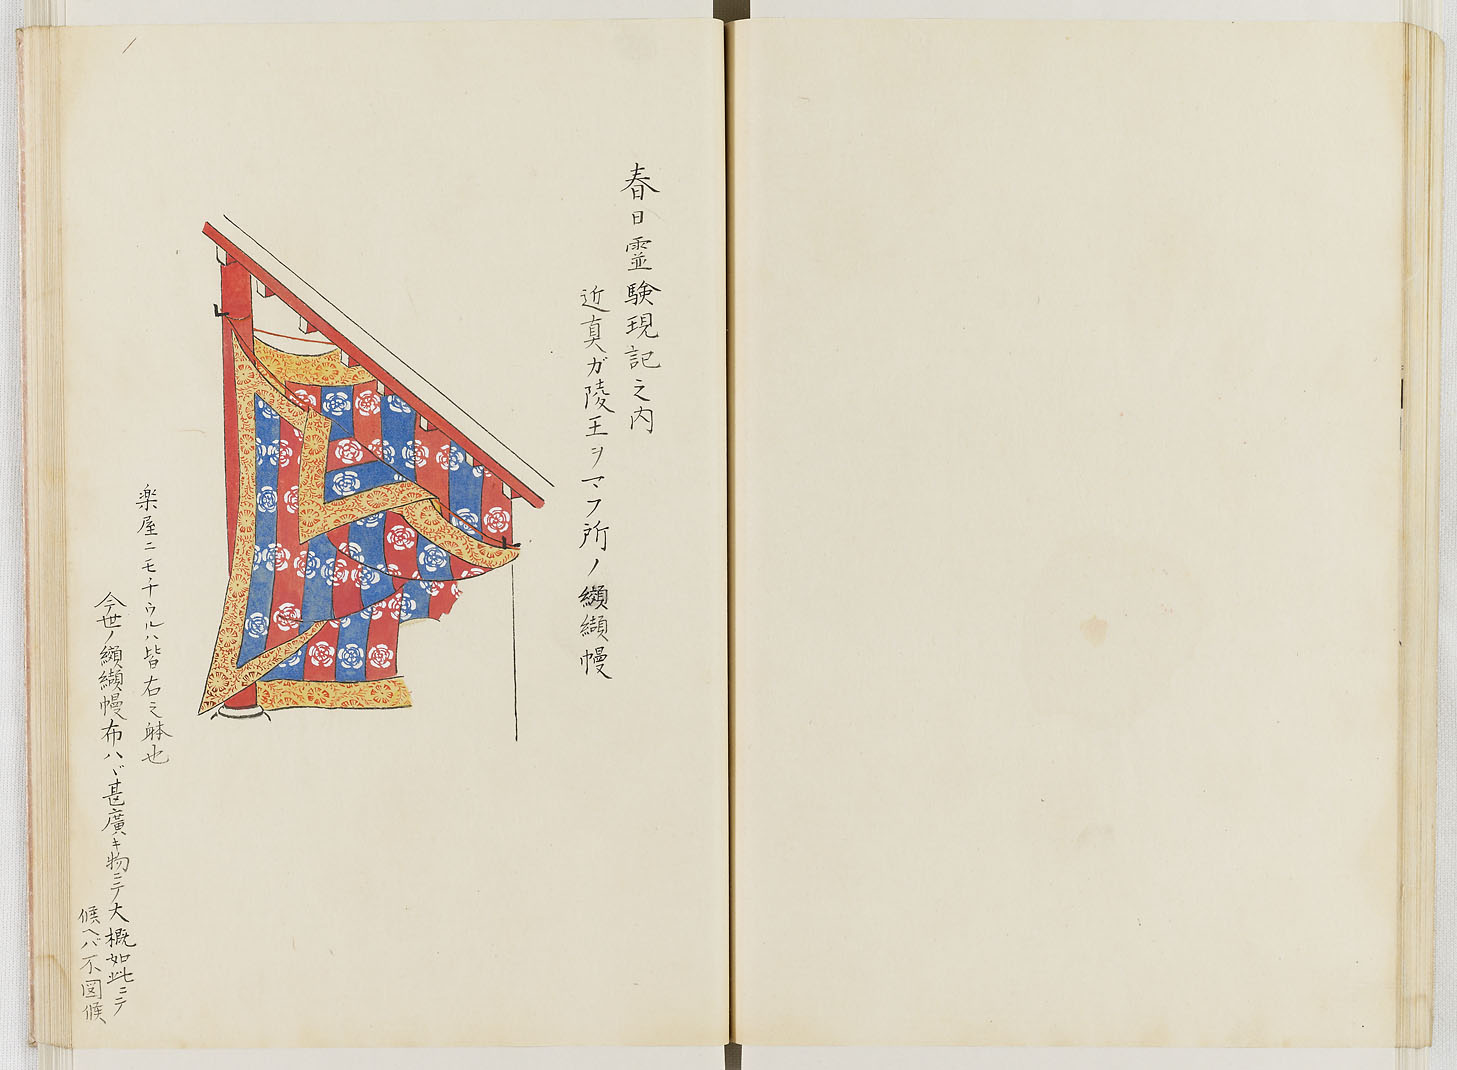 春日霊験現記之内
近真ガ陵王ヲマフ所ノ纐纈幔
楽屋ニモチウルハ皆右之躰也
今世ノ纐纈幔布ハヾ甚廣キ物ニテ大概如此ニテ
候ヘバ不図候